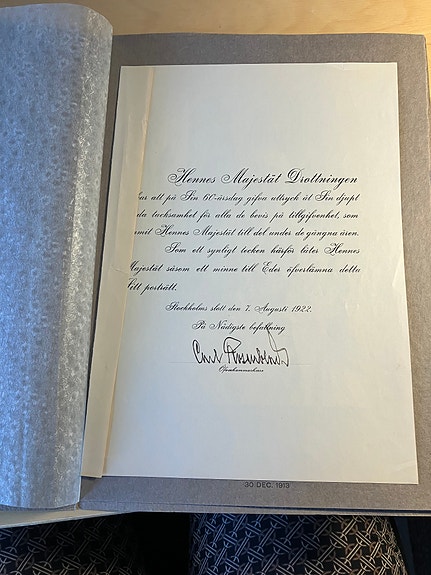 Hennes Majestät Drottningen
har att på Sin 60-årsdag gifva uttryck åt Sin djupt
da tacksamhet för alla de bevis på tillgifvenhet, som
rmit Hennes Majestät till del under de gångna åren.
Som ett synligt tecken härför låter Hennes
Majestät såsom ett minne till Eder öfverlämna detta
Sitt porträtt.
Stockholms slott den 7. Augusti 1922.
På Nådigste befallning
Carl
30 DEC. 1913